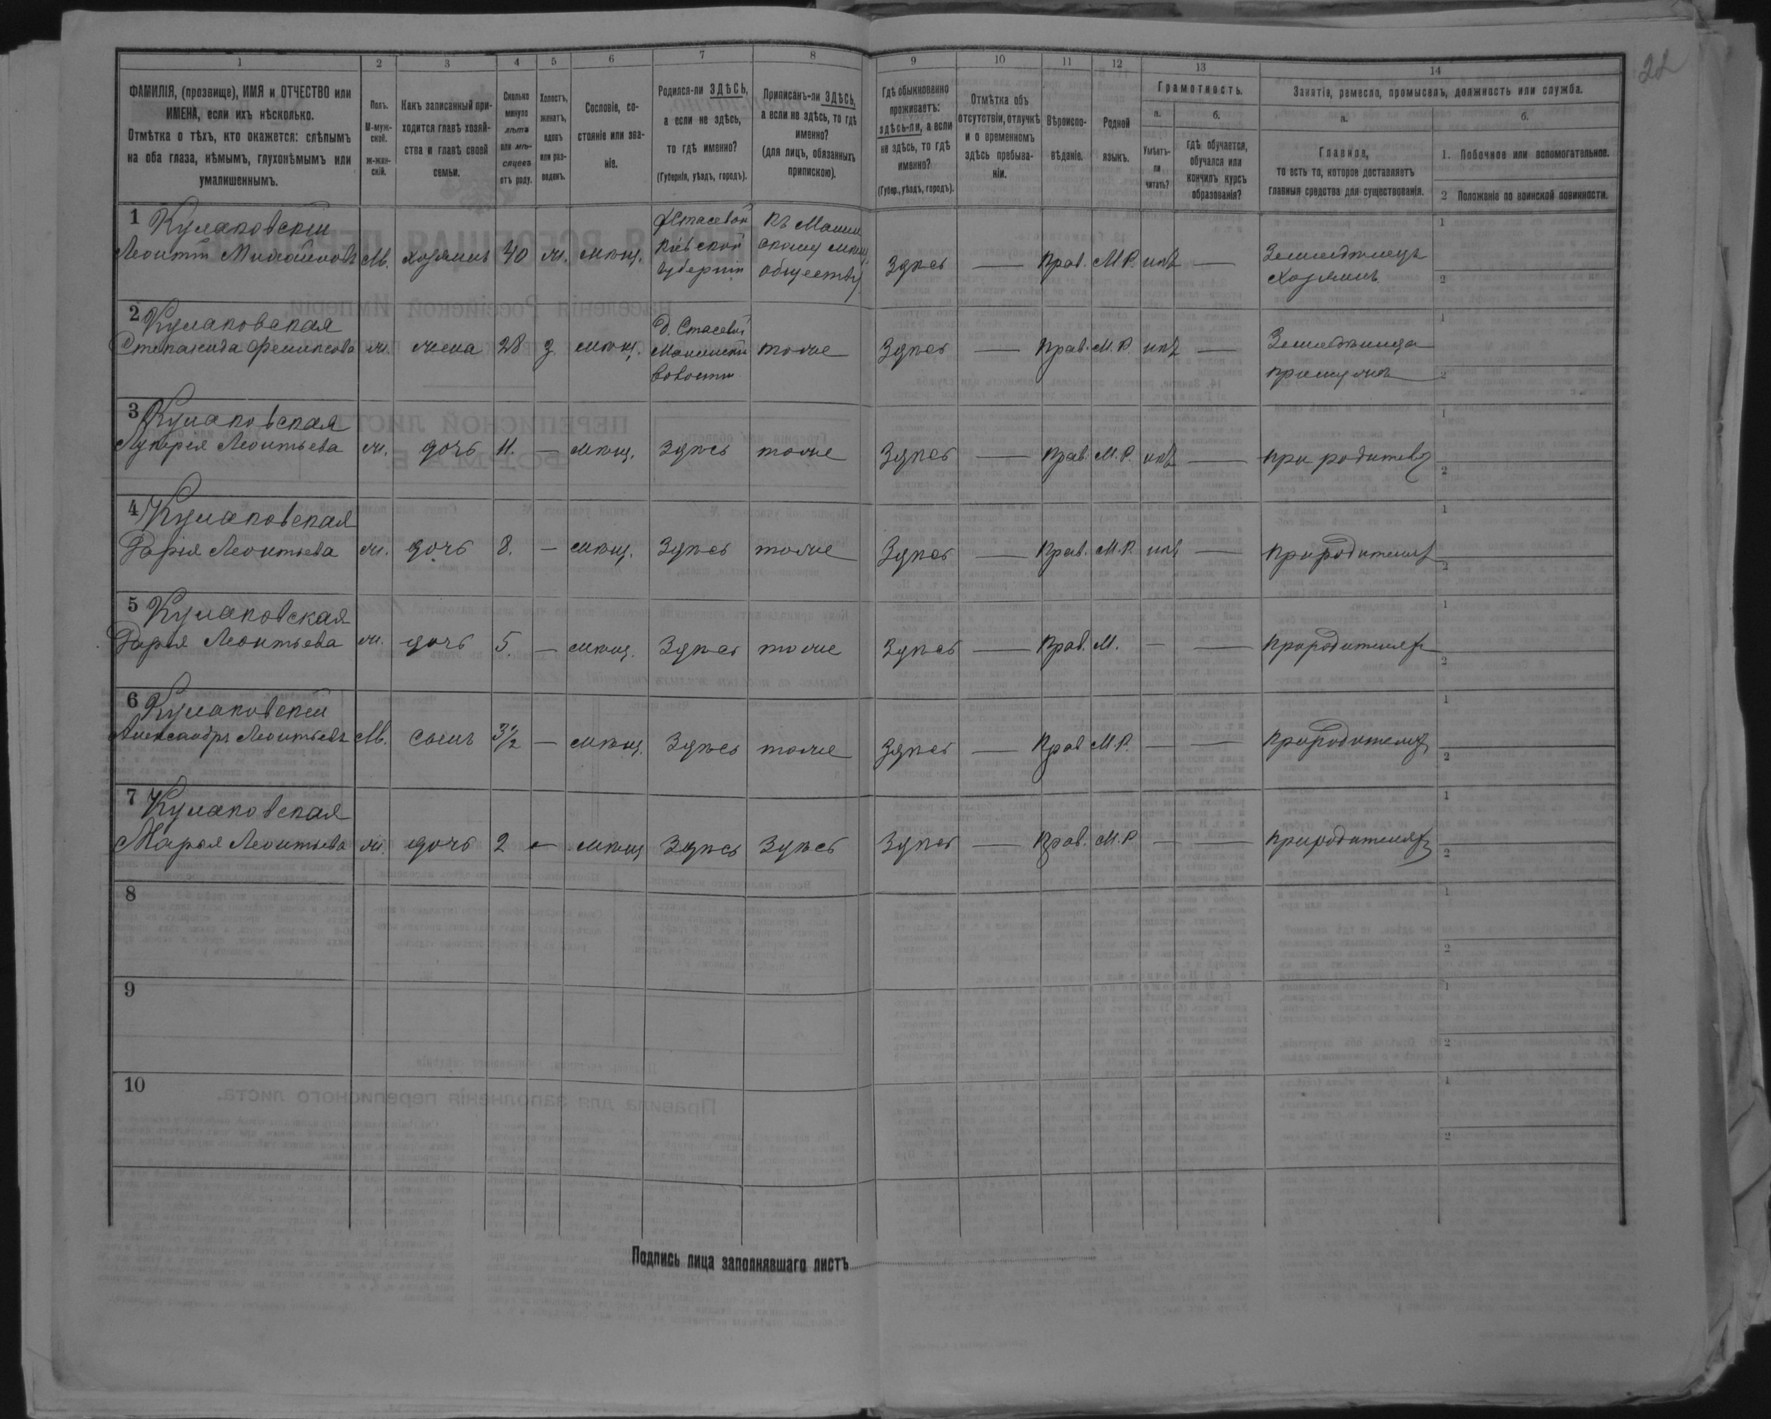 22
1 2 3 4 5 6 7 8 9 10 11 12 13 14
ФАМИЛІЯ, (прозвище), ИМЯ и ОТЧЕСТВО или
ИМЕНА, если ихъ нѣсколько.
Отмѣтка о тѣхъ, кто окажется: слѣпымъ
на оба глаза, нѣмымъ, глухонѣмымъ или
умалишеннымъ.
Полъ.
М-муж-
ской.
ж-жен-
скій.
Какъ записанный при-
ходится главѣ хозяй-
ства и главѣ своей
семьи.
Сколько
минуло
лѣтъ
или мѣ-
сяцевъ
отъ роду.
Холостъ,
женатъ,
вдовъ
или раз-
веденъ.
Сословіе, со-
стояніе или зва-
ніе.
Родился-ли ЗДѢСЬ,
а если не здѣсь,
то гдѣ именно?
(Губернія, уѣздъ, городъ).
Приписанъ-ли ЗДѢСЬ,
а если не здѣсь, то гдѣ
именно?
(для лицъ, обязанныхъ
припискою).
Гдѣ обыкновенно
проживаетъ:
здѣсь-ли, а если
не здѣсь, то гдѣ
именно?
(Губер., уѣздъ, городъ).
Отмѣтка объ
отсутствіи, отлучкѣ
и о временномъ
здѣсь пребыва-
ніи.
Вѣроиспо-
вѣданіе.
Родной
языкъ.
Грамотность.
а.
Умѣетъ-
ли
читать?
б.
Гдѣ обучается,
обучался или
кончилъ курсъ
образованія?
Занятіе, ремесло, промыселъ, должность или служба.
а.
Главное,
то есть то, которое доставляетъ
главныя средства для существованія.
б.
1. Побочное или вспомогательное.
2 Положеніе по воинской повинности.
1 Кулаковскій
Леонтій М. хозяинъ 40 ж. мѣщ.
Кіевской
губерніи
обществу
Здѣсь — Прав. М.Р. нѣт —
Земледѣлецъ
Хозяинъ
1
2
2 Кулаковская
Степанида ж. жена 28 з мѣщ.
волости
тоже Здѣсь — Прав. М.Р. нѣт —
1
2
3 Кулаковская
Лукерія Леонтьева ж. дочь 11. — мѣщ. Здѣсь тоже Здѣсь — Прав. М.Р. нѣт — при родителях
1
2
4 Кулаковская
Дарія Леонтьева ж. дочь 8. — мѣщ. Здѣсь тоже Здѣсь — Прав. М.Р. нѣт — при родителях
1
2
5 Кулаковская
Дарья Леонтьева ж. дочь 5. — мѣщ. Здѣсь тоже Здѣсь — Прав. М. — — при родителях
1
2
6 Кулаковскій
Александръ Леонтьевъ М. сынъ 3½ — мѣщ. Здѣсь тоже Здѣсь — Прав М.Р. — — при родителях
1
2
7 Кулаковская
Марія Леонтьева ж. дочь 2 — мѣщ Здѣсь Здѣсь Здѣсь — Прав. М.Р. — — при родителях
1
2
8
1
2
9
1
2
10
1
2
Подпись лица заполнявшаго листъ